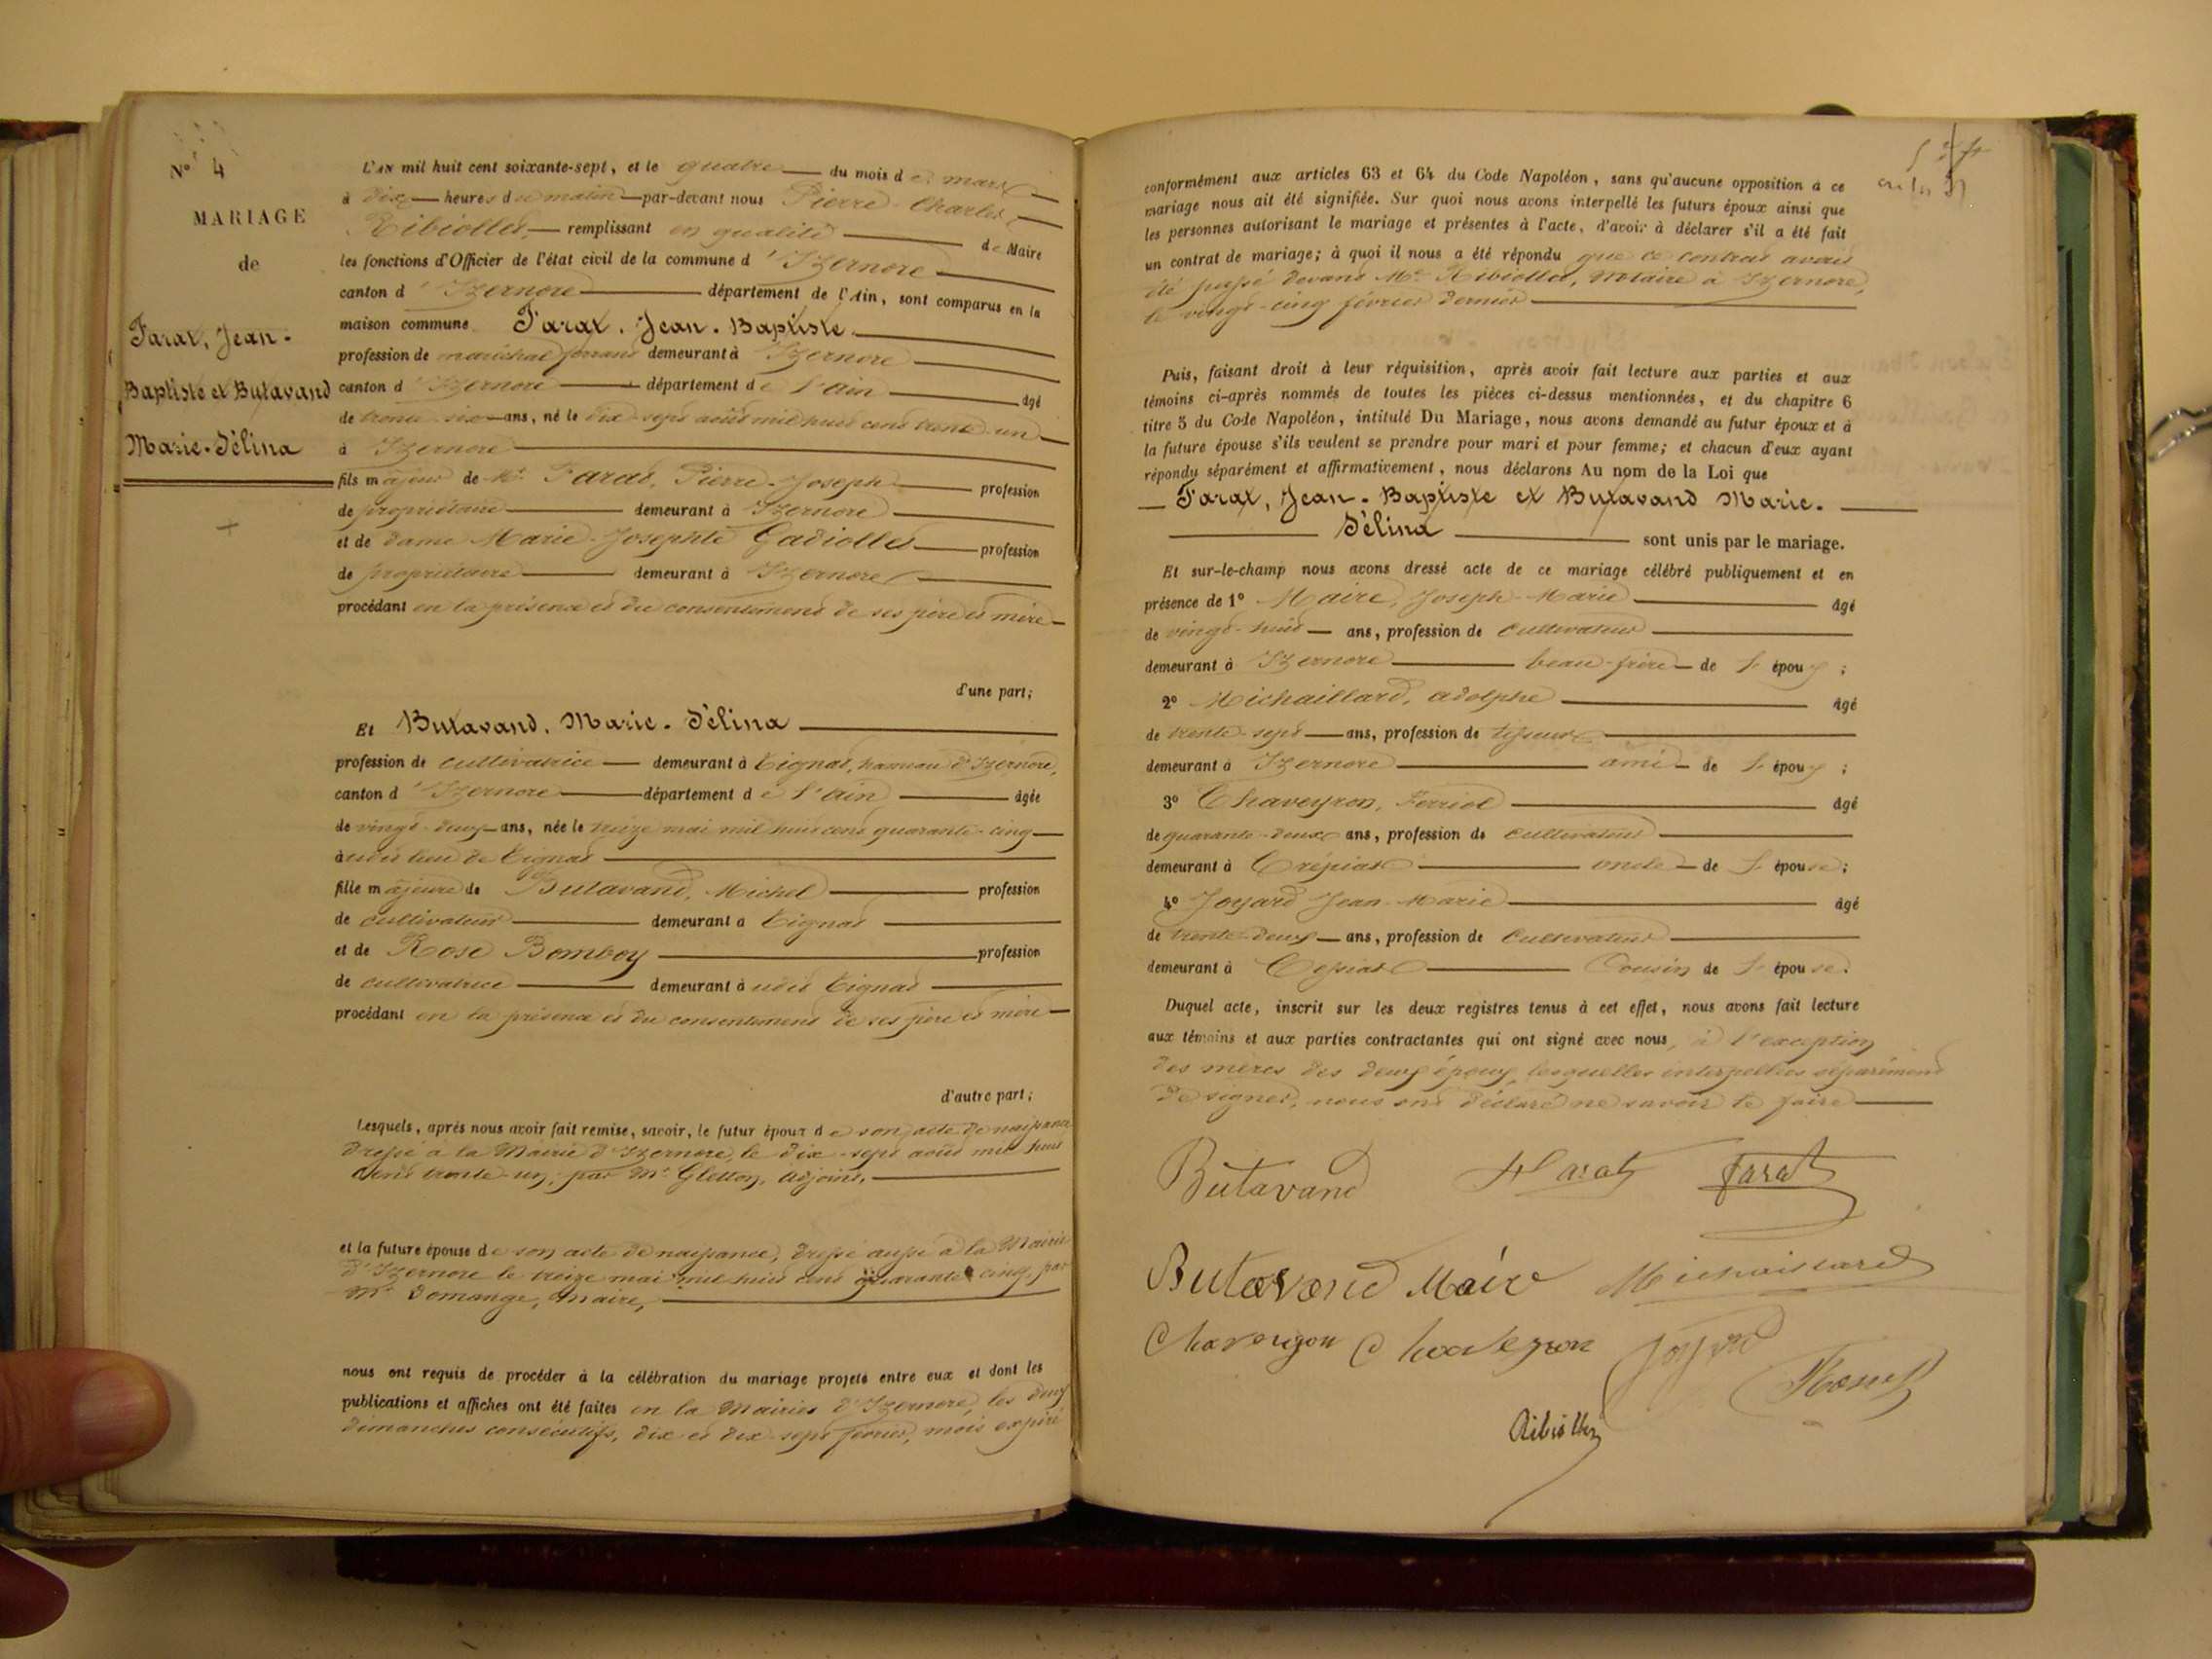 N° 4
MARIAGE
de
Farat, Jean-
Baptiste et Butavand
Marie-Célina
L'AN mil huit cent soixante-sept, et le quatre du mois de mars
à dix heures du matin par-devant nous Pierre-Charles
Ribiollet, remplissant en qualité de Maire
les fonctions d'Officier de l'état civil de la commune d'Izernore
canton d'Izernore département de l'Ain, sont comparus en la
maison commune Farat, Jean-Baptiste
profession de maréchal ferrant demeurant à Izernore
canton d'Izernore département de l'ain âgé
de trente-six ans, né le dix-sept août mil huit cent trente-un
à Izernore
fils majeur de Mr Farat, Pierre-Joseph profession
de propriétaire demeurant à Izernore
et de dame Marie-Josephte Gadiollet profession
de propriétaire demeurant à Izernore
procédant en la présence et du consentement de ses père et mère
d'une part;
Et Butavand, Marie-Célina
profession de cultivatrice demeurant à Tignat, hameau d'Izernore,
canton d'Izernore département de l'ain âgée
de vingt-deux ans, née le treize mai mil huit cent quarante-cinq
audit lieu de Tignat
fille majeure de Butavand, Michel profession
de cultivateur demeurant à Tignat
et de Rose Bomboy profession
de cultivatrice demeurant à udit Tignat
procédant en la présence et du consentement de ses père et mère
d'autre part;
Lesquels, après nous avoir fait remise, savoir, le futur époux de son acte de naissance
dressé à la Mairie d'Izernore, le dix-sept août mil huit
cent trente-un, par Mr Gletton, adjoint,
et la future épouse de son acte de naissance, dressé aussi à la Mairie
d'Izernore le treize mai mil huit cent quarante-cinq, par
Mr Domange, maire,
nous ont requis de procéder à la célébration du mariage projeté entre eux et dont les
publications et affiches ont été faites en la Mairie d'Izernore, les deux
dimanches consécutifs, dix et dix-sept février, mois expiré
conformément aux articles 63 et 64 du Code Napoléon, sans qu'aucune opposition à ce
mariage nous ait été signifiée. Sur quoi nous avons interpellé les futurs époux ainsi que
les personnes autorisant le mariage et présentes à l'acte, d'avoir à déclarer s'il a été fait
un contrat de mariage; à quoi il nous a été répondu que ce contrat avait
été passé devant Me Ribiollet, notaire à Izernore,
le vingt-cinq février dernier
Puis, faisant droit à leur réquisition, après avoir fait lecture aux parties et aux
témoins ci-après nommés de toutes les pièces ci-dessus mentionnées, et du chapitre 6
titre 5 du Code Napoléon, intitulé Du Mariage, nous avons demandé au futur époux et à
la future épouse s'ils veulent se prendre pour mari et pour femme; et chacun d'eux ayant
répondu séparément et affirmativement, nous déclarons Au nom de la Loi que
Farat, Jean-Baptiste et Butavand Marie-
Célina sont unis par le mariage.
Et sur-le-champ nous avons dressé acte de ce mariage célébré publiquement et en
présence de 1° Maire, Joseph-Marie âgé
de vingt-huit ans, profession de cultivateur
demeurant à Izernore beau-frère de l'époux;
2° Michaillard, adolphe âgé
de trente-sept ans, profession de tisseur
demeurant à Izernore ami de l'époux;
3° Chaveyron, Ferriol âgé
de quarante-deux ans, profession de cultivateur
demeurant à Crépiat oncle de l'épouse;
4° Joyard Jean-Marie âgé
de trente-deux ans, profession de cultivateur
demeurant à Cessiat Cousin de l'épouse.
Duquel acte, inscrit sur les deux registres tenus à cet effet, nous avons fait lecture
aux témoins et aux parties contractantes qui ont signé avec nous, à l'exception
des mères des deux époux, lesquelles interpellées séparément
de signer, nous ont déclaré ne savoir le faire
Butavand Farat Farat
Butavand Maire Michaillard
Chaveyron Chaveyron Joyard
Ribiollet